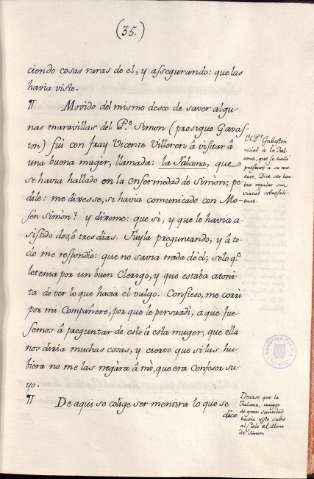 (35.)
ciendo cosas raras de el, y assegurando: que las
havia visto.
¶ Movido del mismo deseo de saver algu-
nas maravillas del Pe. Simon (prosigue Gavas-
ton) fui con fray Vicente Villeron à visitar à
una buena muger, llamada: la Solana, que
se havia hallado en la enfermedad de Simon; pe
dile: me dixesse, si havia comunicado con Mo-
sen Simon? y dixome: que si, y que le havia a-
sistido dos, ò tres dias. Fuyla preguntando, y à to-
do me respondiò: que no savia nada de el; solo q.
le tenia por un buen Clerigo, y que estaba atoni-
ta de ver lo que hacia el vulgo. Confieso, me corri
por mi Compañero, porque le persuadì, a que fue-
semos à preguntar de este à esta muger, que ella
nos diria muchas cosas, y creere que si las hu-
biera no me las negara à mì, que era Confesor su-
yo.
¶ De aqui se colige ser mentira lo que se
dice
Gabaston
visitò à la
que se hallò
Dixose que la
Solana, muger
de gran santidad
havia visto subir
al Cielo el Alma
de Simon